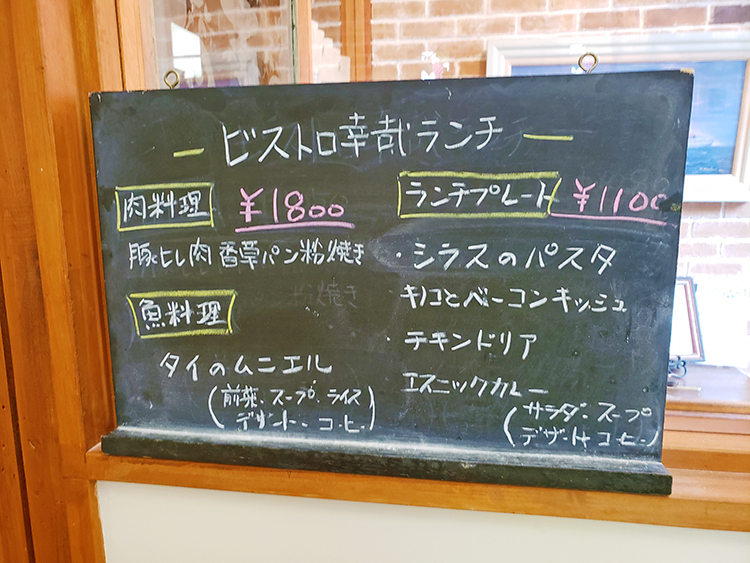 ービストロ幸哉ランチー
肉料理 ¥1800
豚ヒレ肉香草パン粉焼き
魚料理
タイのムニエル
(前菜.スープ.ライス
デザート.コーヒー)
ランチプレート ¥1100
・シラスのパスタ
キノコとベーコンキッシュ
チキンドリア
エスニックカレー
(サラダ.スープ
デザートコーヒー)